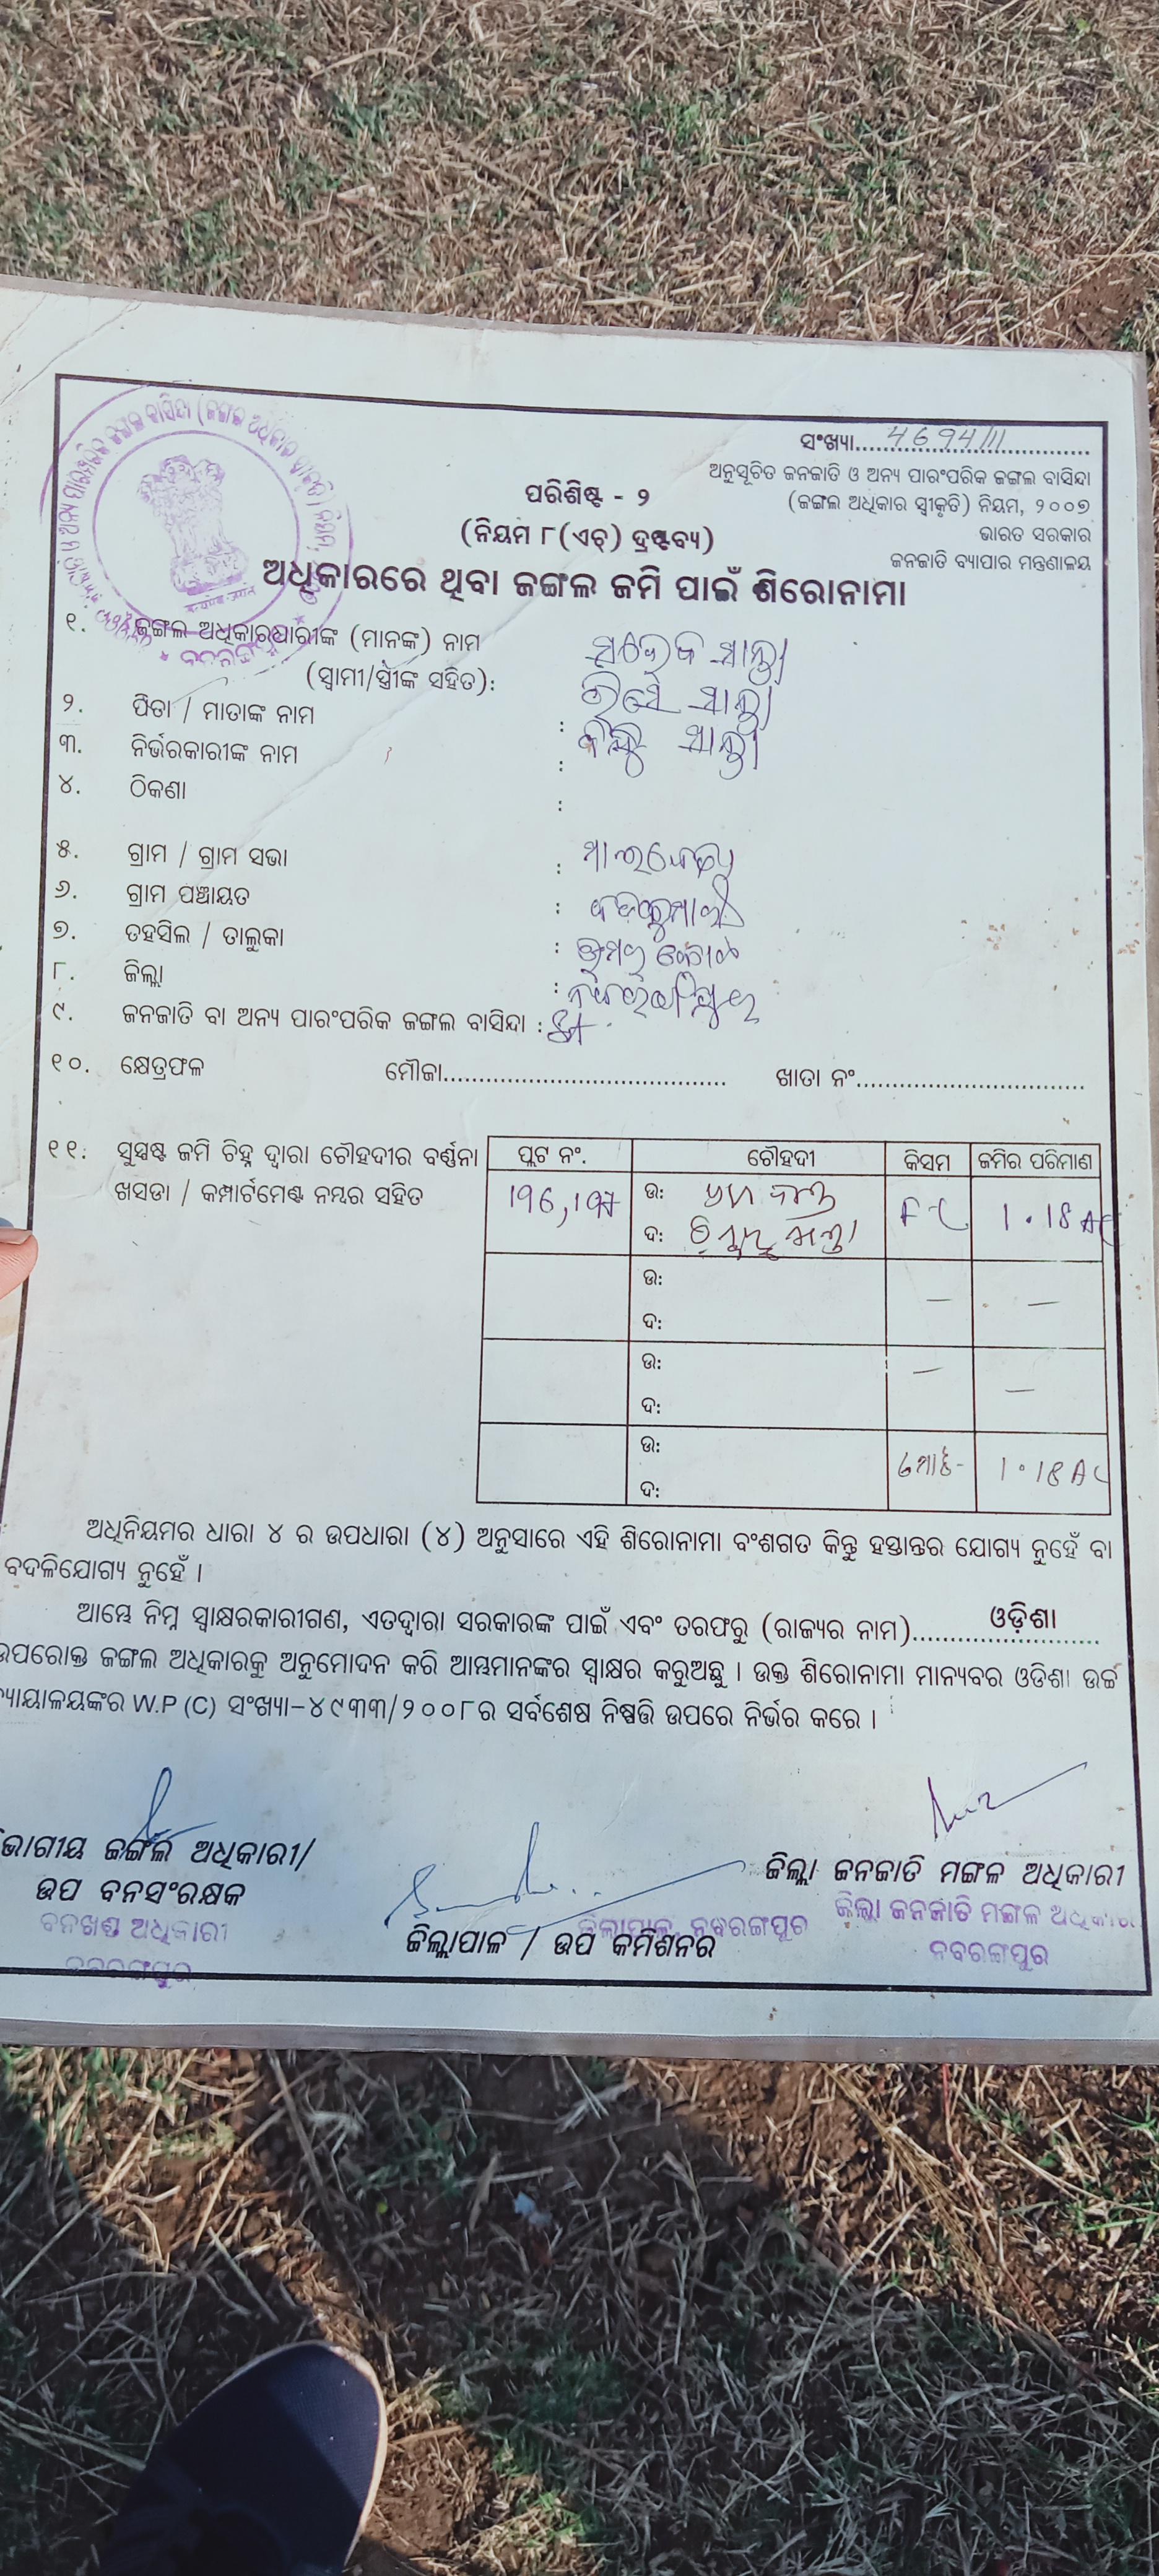 ସଂଖ୍ୟା....4694/11....
ଅନୁସୂଚିତ ଜନଜାତି ଓ ଅନ୍ୟ ପାରଂପରିକ ଜଙ୍ଗଲ ବାସିନ୍ଦା
(ଜଙ୍ଗଲ ଅଧିକାର ସ୍ୱୀକୃତି) ନିୟମ, ୨୦୦୭
ଭାରତ ସରକାର
ଜନଜାତି ବ୍ୟାପାର ମନ୍ତ୍ରଣାଳୟ
ପରିଶିଷ୍ଟ - ୨
(ନିୟମ ୮(ଏଚ୍) ଦ୍ରଷ୍ଟବ୍ୟ)
ଅଧିକାରରେ ଥିବା ଜଙ୍ଗଲ ଜମି ପାଇଁ ଶିରୋନାମା
୧. ଜଙ୍ଗଲ ଅଧିକାରଧାରୀଙ୍କ (ମାନଙ୍କ) ନାମ
(ସ୍ୱାମୀ/ସ୍ତ୍ରୀଙ୍କ ସହିତ):
୨. ପିତା / ମାତାଙ୍କ ନାମ :
୩. ନିର୍ଭରକାରୀଙ୍କ ନାମ :
୪. ଠିକଣା :
୫. ଗ୍ରାମ / ଗ୍ରାମ ସଭା :
୬. ଗ୍ରାମ ପଞ୍ଚାୟତ :
୭. ତହସିଲ / ତାଲୁକା :
୮. ଜିଲ୍ଲା :
୯. ଜନଜାତି ବା ଅନ୍ୟ ପାରଂପରିକ ଜଙ୍ଗଲ ବାସିନ୍ଦା :
୧୦. କ୍ଷେତ୍ରଫଳ ମୌଜା........ ଖାତା ନଂ........
୧୧. ସୁସ୍ପଷ୍ଟ ଜମି ଚିହ୍ନ ଦ୍ୱାରା ଚୌହଦୀର ବର୍ଣ୍ଣନା
ଖସଡା / କମ୍ପାର୍ଟମେଣ୍ଟ ନମ୍ବର ସହିତ
ପ୍ଲଟ ନଂ. ଚୌହଦୀ କିସମ ଜମିର ପରିମାଣ
196, 197 ଉ: 1.18 AC
ଦ:
ଉ: — —
ଦ:
ଉ: — —
ଦ:
ଉ: ମୋଟ- 1.18 AC
ଦ:
ଅଧିନିୟମର ଧାରା ୪ ର ଉପଧାରା (୪) ଅନୁସାରେ ଏହି ଶିରୋନାମା ବଂଶଗତ କିନ୍ତୁ ହସ୍ତାନ୍ତର ଯୋଗ୍ୟ ନୁହେଁ ବା
ବଦଳିଯୋଗ୍ୟ ନୁହେଁ ।
ଆମ୍ଭେ ନିମ୍ନ ସ୍ୱାକ୍ଷରକାରୀଗଣ, ଏତଦ୍ୱାରା ସରକାରଙ୍କ ପାଇଁ ଏବଂ ତରଫରୁ (ରାଜ୍ୟର ନାମ)....ଓଡ଼ିଶା....
ଉପରୋକ୍ତ ଜଙ୍ଗଲ ଅଧିକାରକୁ ଅନୁମୋଦନ କରି ଆମ୍ଭମାନଙ୍କର ସ୍ୱାକ୍ଷର କରୁଅଛୁ । ଉକ୍ତ ଶିରୋନାମା ମାନ୍ୟବର ଓଡିଶା ଉଚ୍ଚ
ନ୍ୟାୟାଳୟଙ୍କର W.P (C) ସଂଖ୍ୟା-୪୯୩୩/୨୦୦୮ର ସର୍ବଶେଷ ନିଷ୍ପତ୍ତି ଉପରେ ନିର୍ଭର କରେ ।
ଭାଗୀୟ ଜଙ୍ଗଲ ଅଧିକାରୀ/
ଉପ ବନସଂରକ୍ଷକ
ବନଖଣ୍ଡ ଅଧିକାରୀ
ନବରଙ୍ଗପୁର
ଜିଲ୍ଲାପାଳ / ଉପ କମିଶନର
ଜିଲ୍ଲାପାଳ, ନବରଙ୍ଗପୁର
ଜିଲ୍ଲା ଜନଜାତି ମଙ୍ଗଳ ଅଧିକାରୀ
ଜିଲ୍ଲା ଜନଜାତି ମଙ୍ଗଳ ଅଧିକାରୀ
ନବରଙ୍ଗପୁର